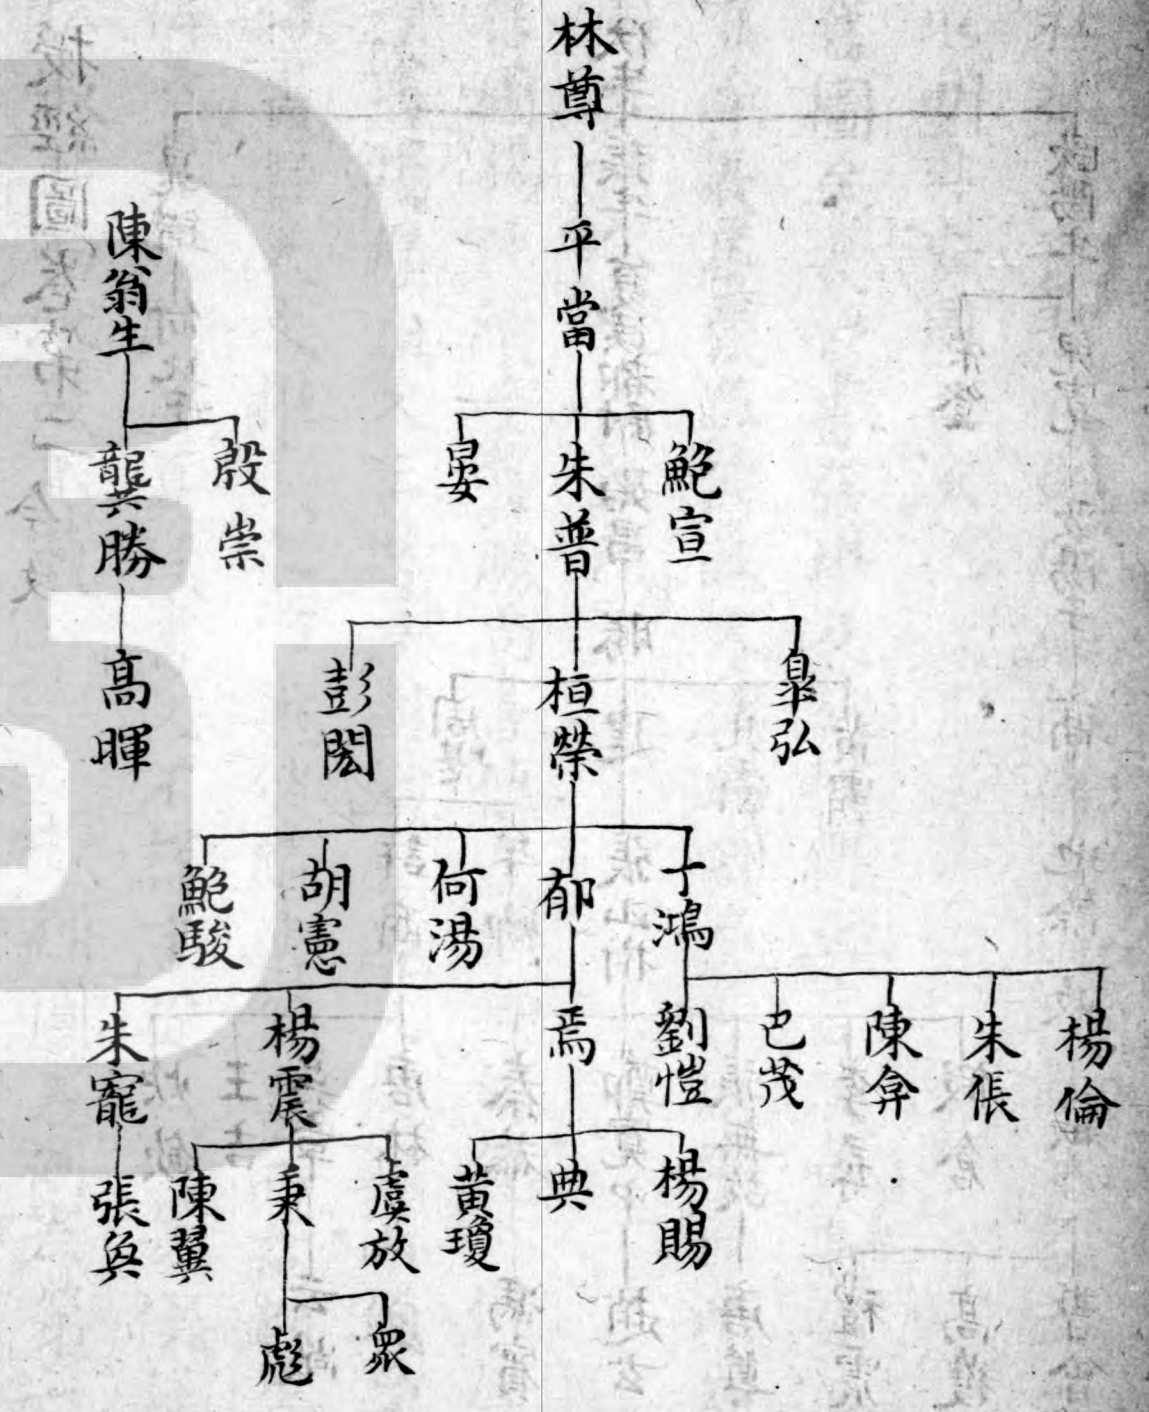 林尊
平當
鮑宣
朱普
晏
皐弘
桓榮
彭閎
丁鴻
郁
何湯
胡憲
鮑駿
楊倫
朱倀
陳弇
巴茂
劉愷
焉
楊震
朱寵
楊賜
典
黃瓊
虞放
秉
陳翼
張奐
衆
彪
陳翁生
殷崇
龔勝
髙暉